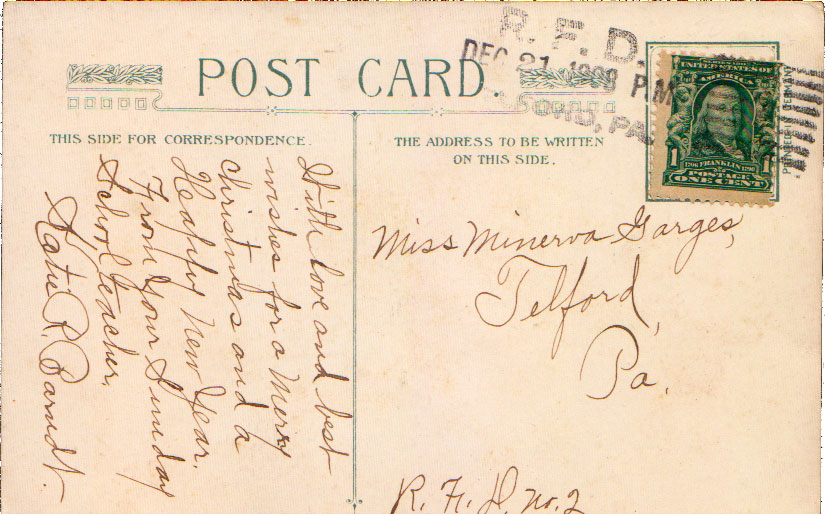 POST CARD.
R. F. D.
DEC 21 1908 P.M.
THIS SIDE FOR CORRESPONDENCE.
THE ADDRESS TO BE WRITTEN
ON THIS SIDE.
UNITED STATES OF
AMERICA
1706 FRANKLIN 1790
1 1
POSTAGE
ONE CENT
With love and best
wishes for a Merry
Christmas and a
Happy New Year.
From Your Sunday
School teacher,
Katie R. Barndt.
Miss Minerva Garges,
Telford,
Pa.
R. F. D. No. 2